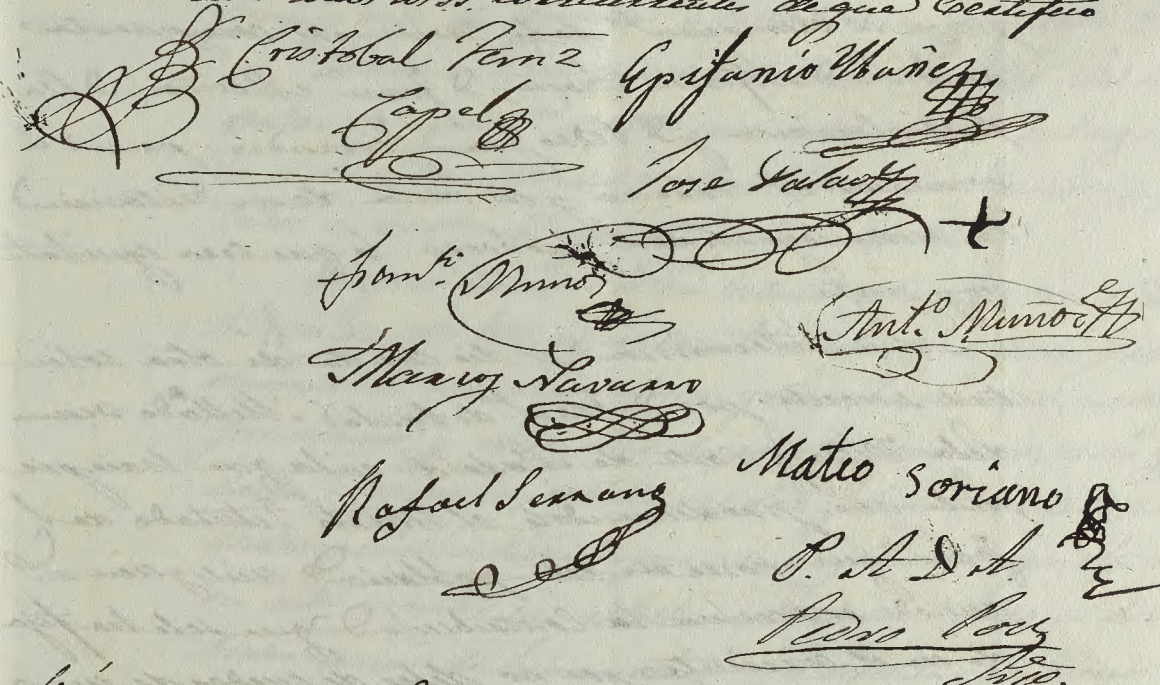 concurrentes de que Certifico
Cristobal Fern.z
Capel
Epifanio Ybañez
Jose Palao
Fran.co Muñoz
Ant.o Muñoz
Marcos Navarro
Rafael Serrano
Mateo Soriano
P. A D A
Pedro